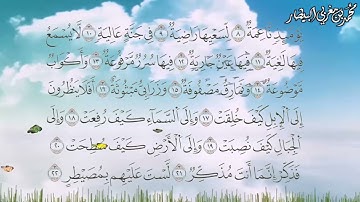 محمد بن مغربي البيطار
يَوْمَئِذٍ نَّاعِمَةٌ ٨ لِّسَعْيِهَا رَاضِيَةٌ ٩ فِي جَنَّةٍ عَالِيَةٍ ١٠ لَّا تَسْمَعُ
فِيهَا لَٰغِيَةً ١١ فِيهَا عَيْنٌ جَارِيَةٌ ١٢ فِيهَا سُرُرٌ مَّرْفُوعَةٌ ١٣ وَأَكْوَابٌ
مَّوْضُوعَةٌ ١٤ وَنَمَارِقُ مَصْفُوفَةٌ ١٥ وَزَرَابِيُّ مَبْثُوثَةٌ ١٦ أَفَلَا يَنظُرُونَ
إِلَى الْإِبِلِ كَيْفَ خُلِقَتْ ١٧ وَإِلَى السَّمَاءِ كَيْفَ رُفِعَتْ ١٨ وَإِلَى
الْجِبَالِ كَيْفَ نُصِبَتْ ١٩ وَإِلَى الْأَرْضِ كَيْفَ سُطِحَتْ ٢٠
فَذَكِّرْ إِنَّمَا أَنتَ مُذَكِّرٌ ٢١ لَّسْتَ عَلَيْهِم بِمُصَيْطِرٍ ٢٢